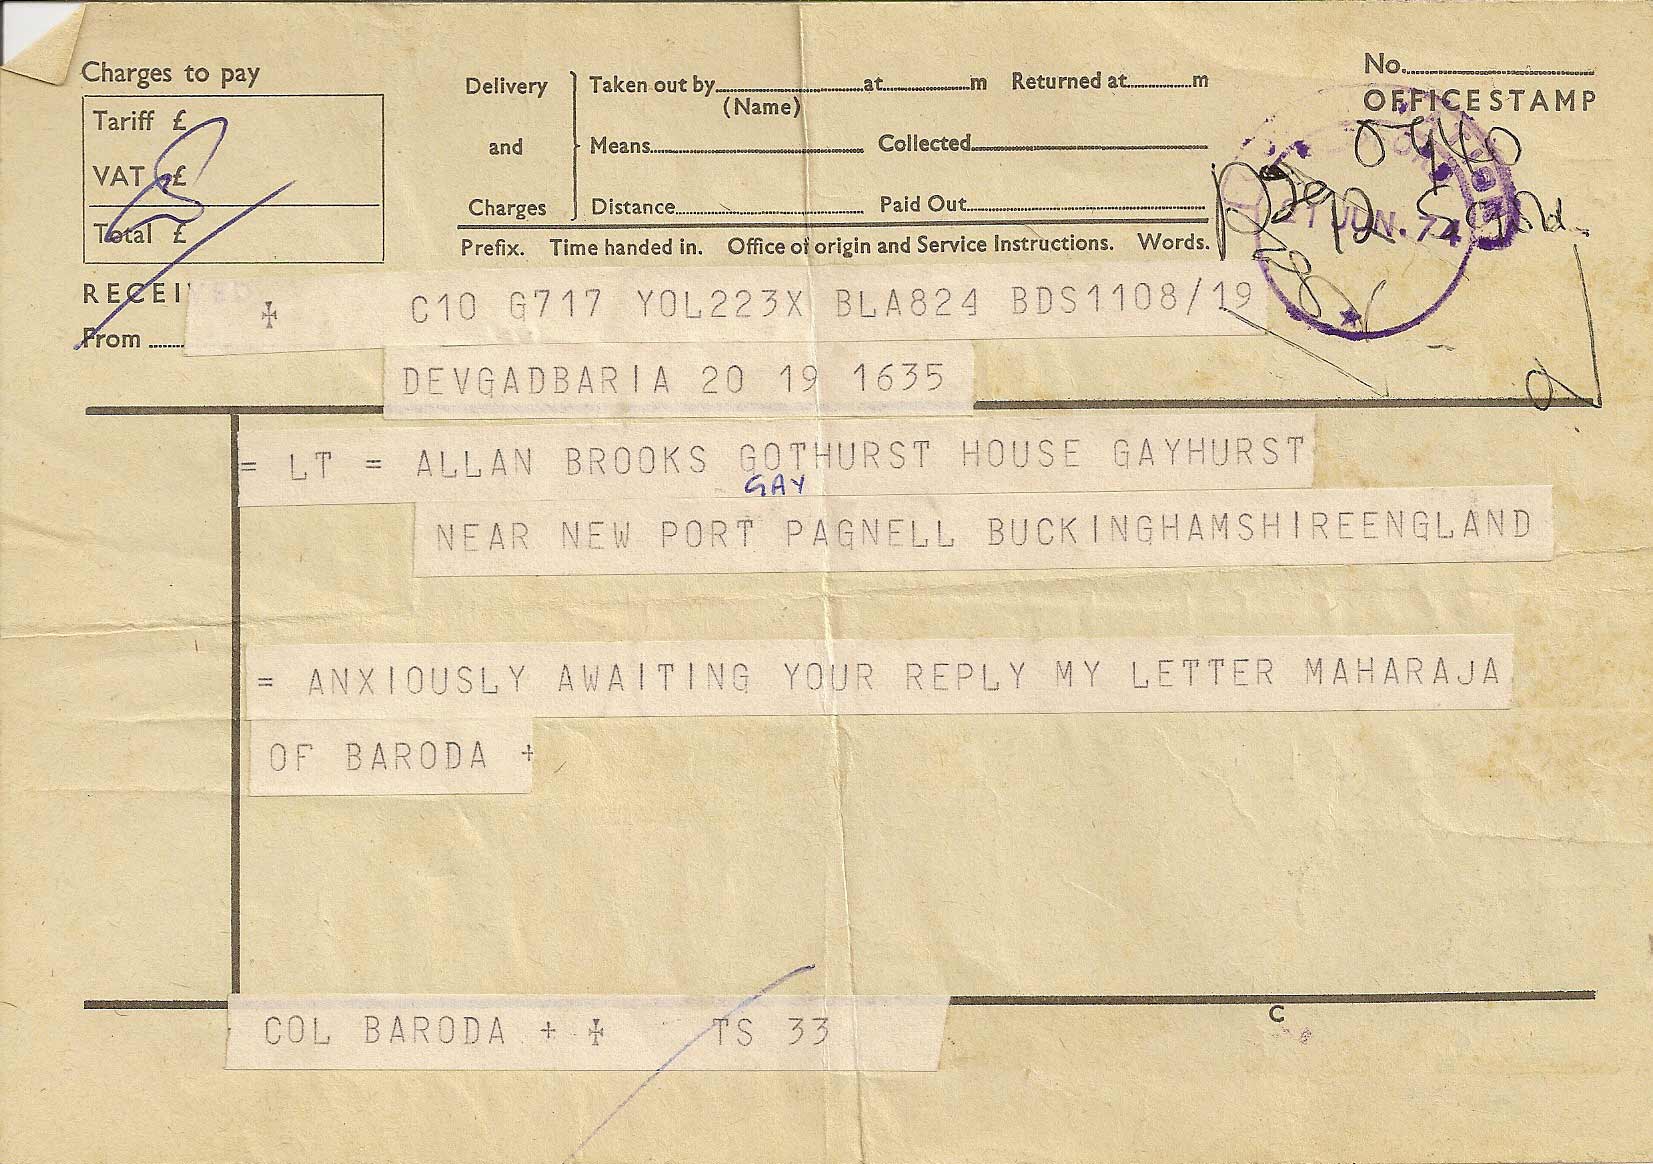 Charges to pay
Tariff £
VAT £
Total £
RECEIVED
From
Delivery
and
Charges
Taken out by at m Returned at m
(Name)
Means Collected
Distance Paid Out
No.
OFFICE STAMP
21 JUN. 74
Prefix. Time handed in. Office of origin and Service Instructions. Words.
C10 G717 YOL223X BLA824 BDS1108/19
DEVGADBARIA 20 19 1635
= LT = ALLAN BROOKS GOTHURST HOUSE GAYHURST
GAY
NEAR NEW PORT PAGNELL BUCKINGHAMSHIREENGLAND
= ANXIOUSLY AWAITING YOUR REPLY MY LETTER MAHARAJA
OF BARODA +
COL BARODA + TS 33
C